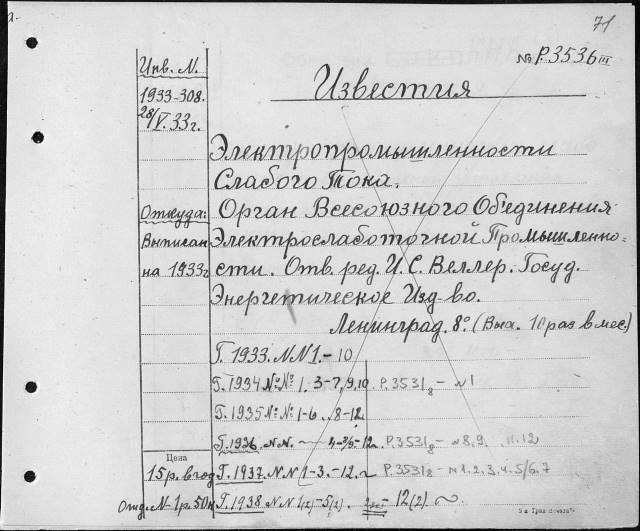 71
№ Р.3536 III
Известия
Инв. N.
1933-308.
28/V.33 г.
Электропромышленности
Слабого Тока.
Откуда: Орган Всесоюзного Объединения
Выписан Электрослаботочной Промышленно=
на 1933 г сти. Отв. ред. И. С. Веллер. Госуд.
Энергетическое Изд-во.
Ленинград. 8°. (Вых. 10 раз в мес.)
Г. 1933. NN 1.-10
Г. 1934 №№ 1.-3-7,9,10. Р.3531 8 - N 1
Г. 1935 №№ 1-6. 8-12
Г. 1936. N.N. ~ 4-5/6-12. Р.3531 8 - N 8.9. 11.12
Цена
15 р. в год Г. 1937. N.N 1-3.-12. Р.3531 8 - N 1.2.3.4.5/6.7
Отд. N-1 р. 50 к Г. 1938 N.N 1(2)-5(2). - 12(2).